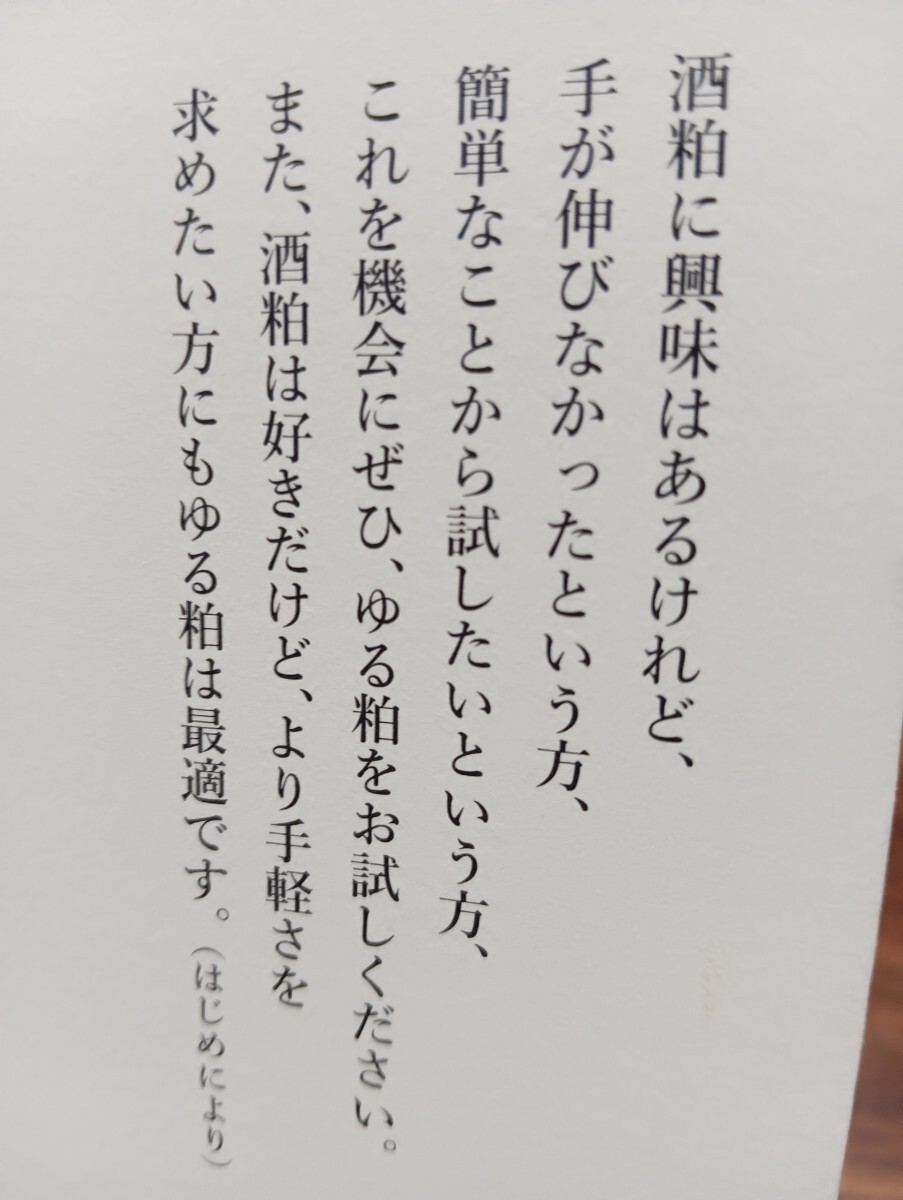 酒粕に興味はあるけれど、
手が伸びなかったという方、
簡単なことから試したいという方、
これを機会にぜひ、ゆる粕をお試しください。
また、酒粕は好きだけど、より手軽さを
求めたい方にもゆる粕は最適です。(はじめにより)